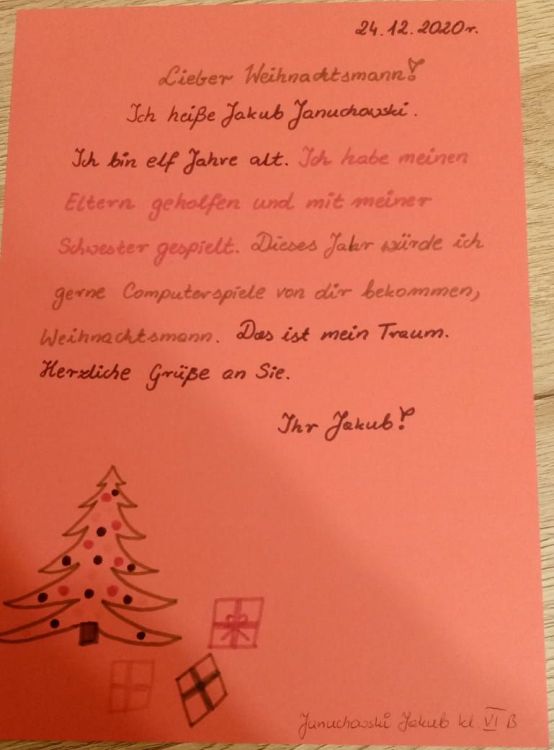 24.12.2020r.
Lieber Weihnachtsmann!
Ich heiße Jakub Januchowski.
Ich bin elf Jahre alt. Ich habe meinen
Eltern geholfen und mit meiner
Schwester gespielt. Dieses Jahr würde ich
gerne Computerspiele von dir bekommen,
Weihnachtsmann. Das ist mein Traum.
Herzliche Grüße an Sie.
Ihr Jakub!
Januchowski Jakub kl VI B